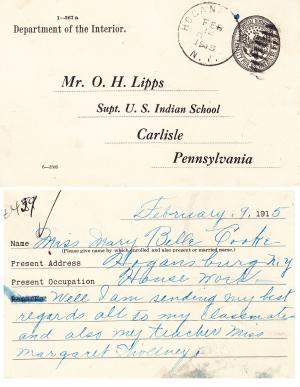 1—567 a
Department of the Interior.
HOGAN
FEB
12
1915
N.Y.
Mr. O. H. Lipps
Supt. U. S. Indian School
Carlisle
Pennsylvania
February. 9. 1915
Name Miss Mary Belle Cooke
(Please give name by which enrolled and also present or married name.)
Present Address Hogansburg N.Y
Present Occupation House Work
Remarks Well I am sending my best
regards all to my classmates
and also my teacher Miss
Margaret